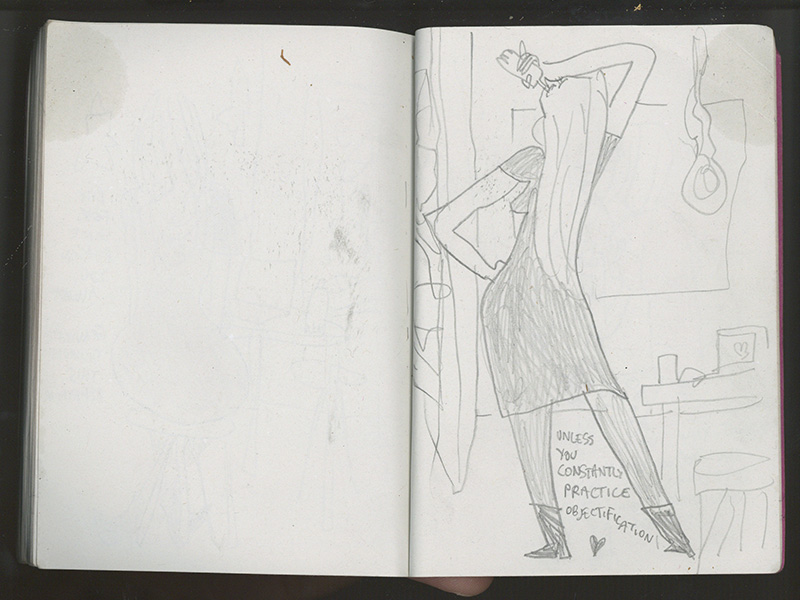 UNLESS
YOU
CONSTANTLY
PRACTICE
OBJECTIFICATION